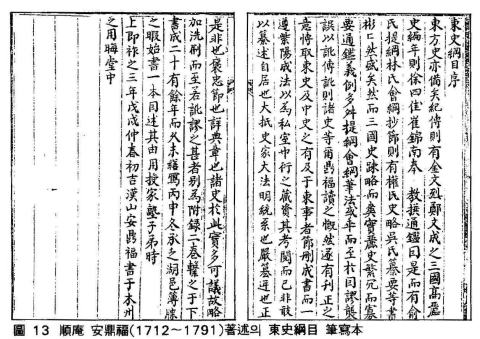 東史綱目序
東方史亦備矣紀傳則有金文烈鄭文成之三國高麗
史編年則徐四佳崔錦南奉 教撰通鑑因是而有俞
氏提綱林氏會綱抄節則有權氏史略吳氏纂要等書
彬彬然盛矣然而三國史疎略而爽實麗史繁冗而寡
要通鑑義例多舛提綱會綱筆法或乖而至於因謬襲
誤以訛傳訛則諸史等爾鼎福讀之慨然遂有刊正之
意博取東史及中史之有及于東事者節刪成書而一
遵紫陽成法以爲私室巾衍之藏資其考閱而已非敢
以纂述自居也大抵史家大法明統系也嚴簒逆也正
是非也褒忠節也詳典章也諸史於此實多可議故略
加洗刷而至若訛謬之甚者別爲附錄二卷繫之于下
書成二十有餘年而未繕寫丙申冬承乏湖邑簿牒
之暇始書一本因述其由用授家塾子弟時
上卽祚之三年戊戌仲春初吉漢山安鼎福書于木州
之用晦堂中
圖 13 順庵 安鼎福(1712～1791)著述의 東史綱目 筆寫本